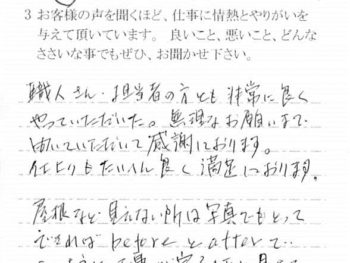 3 お客様の声を聞くほど、仕事に情熱とやりがいを
与えて頂いています。 良いこと、悪いこと、どんな
ささいな事でもぜひ、お聞かせ下さい。
職人さん・担当者の方とも 非常に良く
やっていただいた。無理なお願いまで
聞いていただいて感謝しております。
仕上りもたいへん良く 満足しております。
屋根など 見えない所は写真でもとって
できれば before と after で